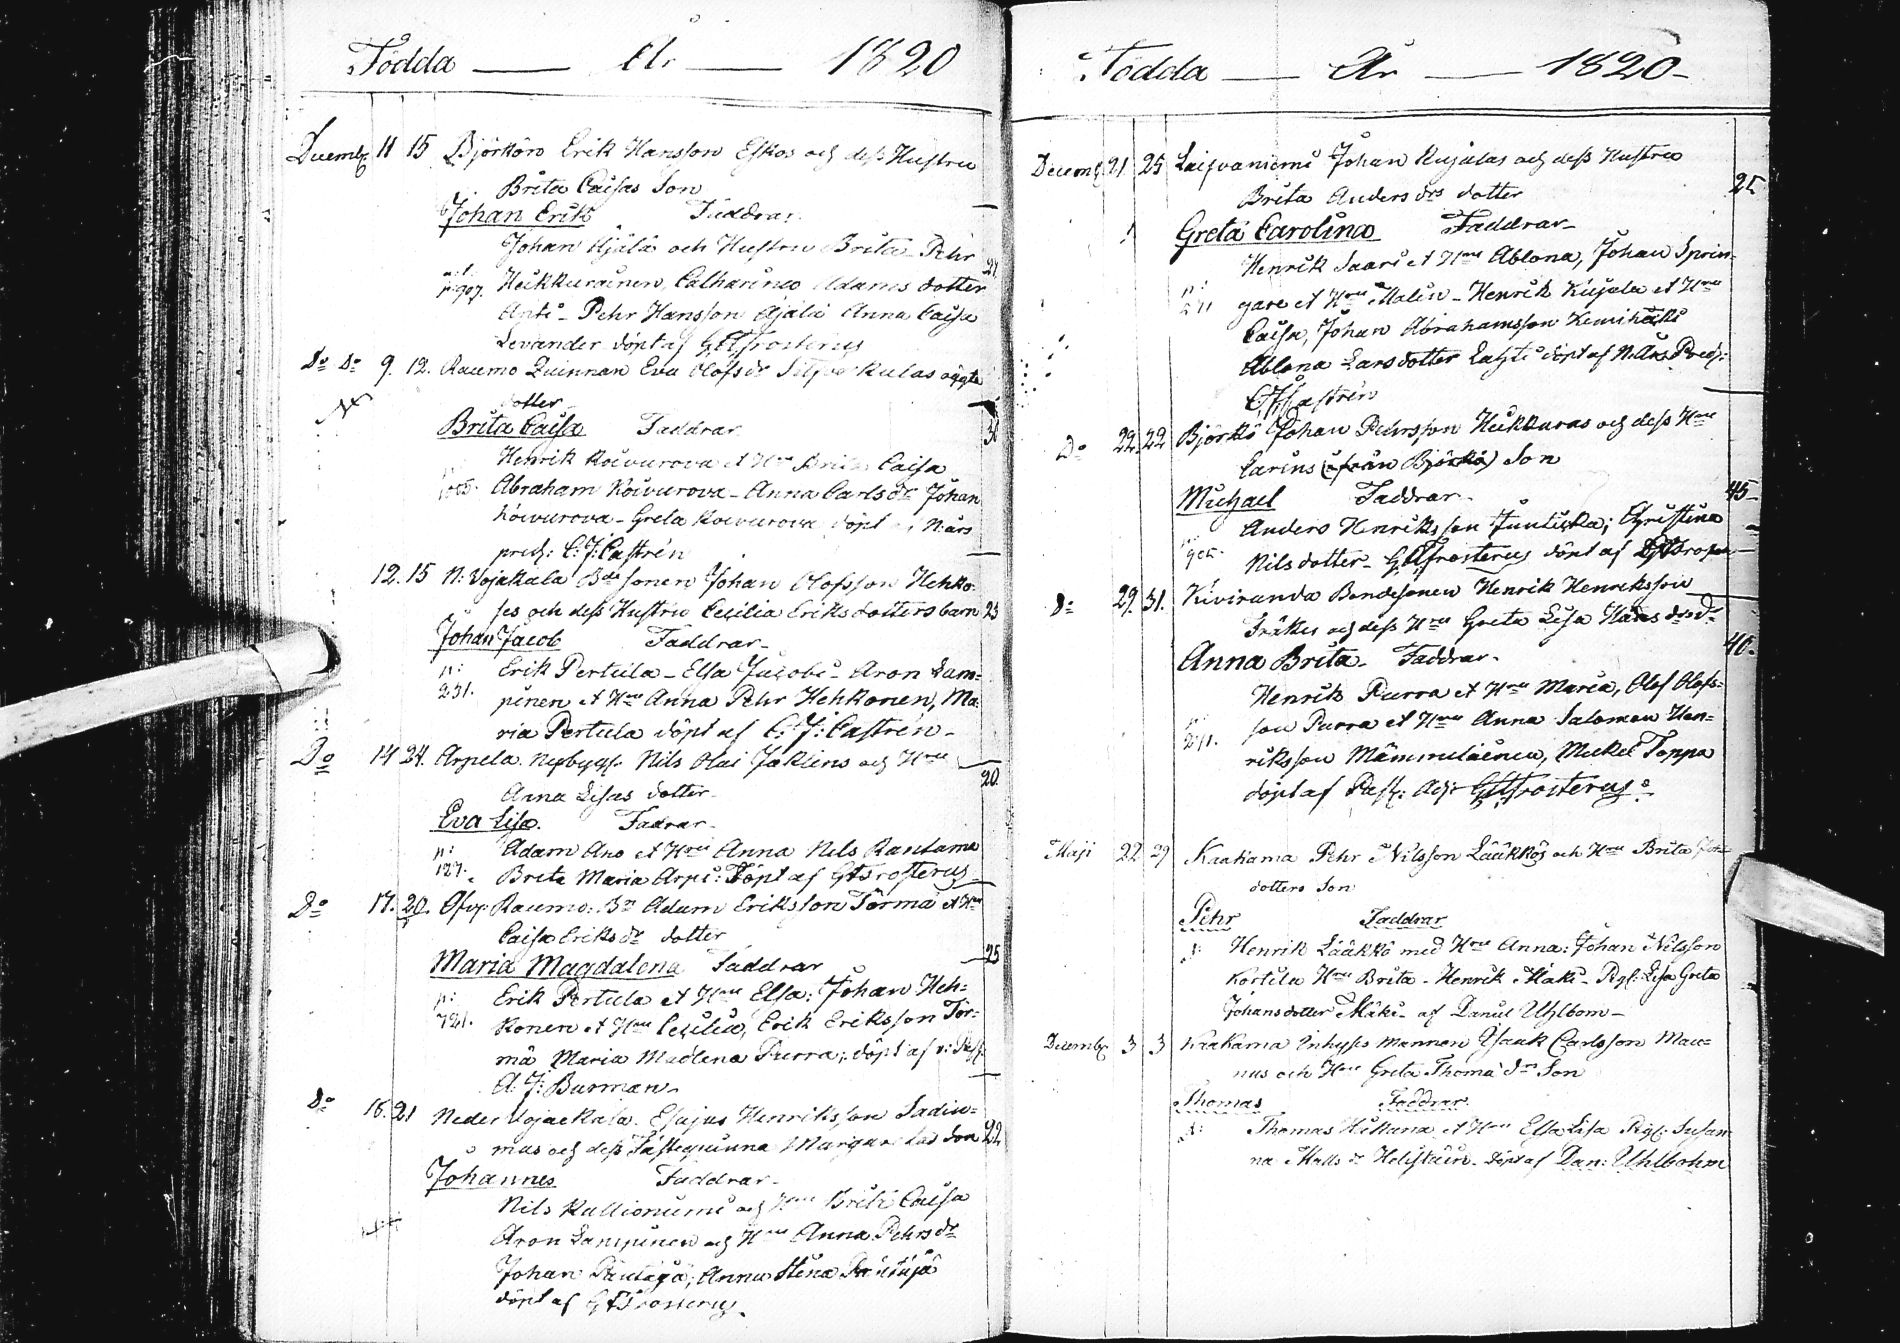 Födda — År — 1820
Decembr 11 15 Björkön Erik Hansson Eskos och dess Hustru
Brita Caisas Son
Johan Erik Faddrar
Johan Ajala och Hustru Brita Pehr
Heikkurainen, Catharina Adams dotter 27
Anti - Pehr Hansson Ajala Anna Caisa
Levander döpt af Frosterus
Do Do 9. 12. Raumo Quinnan Eva Olofsdr oägta
dotter
Brita Caisa Faddrar 30
Henrik Koivurova et Hru Brita Caisa
Abraham Koivurova - Anna Carlsdr Johan
Koivurova - Greta Koivurova döpt af N: års
predi: C: J: Castrén
12. 15 N: Vojakala Bdesonen Johan Olofsson Hehko-
ses och dess Hustru Cecilia Eriksdotters barn 25
Johan Jacob Faddrar -
n: Erik Pertula - Elsa Jacobi - Aron Lam=
231. pinen et Hru Anna Pehr Hehkonen, Ma-
ria Pertula döpt af C: J: Castrén -
Do 14 24. Arpela Nybygg: Nils Olai Jaklins och Hru
Anna Lisas dotter 20
Eva Lisa. Fadrar -
n: Adam Aho et Hru Anna Nils Rantama
127. Brita Maria Arpi: Döpt af Frosterus
Do 17. 20. Ofv: Raumo: Bn Adam Eriksson Törmä et Hru
Caisa Eriksdr dotter
Maria Magdalena Faddrar 25
n: Erik Pertula et Hru Elsa: Johan Heh=
721. konen et Hru Cecilia, Erik Eriksson Tör=
mä Maria Madlena Purra; döpt af
A: J: Burman -
Do 16. 21 Neder Vojackala. Esajas Henriksson Sadin=
mas och dess Fästequinna Margaretas Son 22
Johannes Faddrar -
Nils Kallioniemi och Hru Brita Caisa
Aron Lampinen och Hru Anna Pehrsdr
Johan, Anna Stena
döpt af Frosterus
Födda — År — 1820 -
Decemb 21 25 Laivaniemi Johan Kujalas och dess Hustru
Brita Anders drs dotter 25
Greta Carolina Faddrar -
Henrik Saari et Hru Ablona, Johan Sprin-
n: gare et Hru Malin - Henrik Kujala et Hru
Caisa, Johan Abrahamsson
Ablona Larsdotter döpt af N. Års Predi:
Castrén
Do 22. 22 Björkö Johan Pehrsson Heikkuras och dess Hru
Carins (ifrån Björkö) Son
Michael Faddrar - 45
Anders Henriksson Juntikka; Christina
Nilsdotter - Frosterus döpt af
Do 29. 31. Kiviranda Bondesonen Henrik Henriksson
Fräkis och dess Hru Greta Lisa Hans drs dr
Anna Brita - Faddrar - 40 -
Henrik Purra et Hru Maria, Olof Olofs=
n: son Purra et Hru Anna Salomon Hen=
riksson Mämmiläinen, Mickel Toppa
döpt af Past: Adj: Frosterus
Maji 22 29 Kaakama Pehr Nilsson Lääkkös och Hru Brita
dotters Son
Pehr Faddrar
n: Henrik Lääkkö med Hru Anna: Johan Nilsson
Kortila Hru Brita - Henrik Mäki - Pigl: Lisa Greta
Johansdotter Mäki - af Daniel Uhlbom -
Decembr 3 3 Kaakama Inhyses mannen Isaak Carlsson Mau=
nus och Hru Greta Thomæ dr Son
Thomas Faddrar
n: Thomas et Hru Elsa Lisa Pigl: Susan
na Matts dr döpt af Dan: Uhlbohm